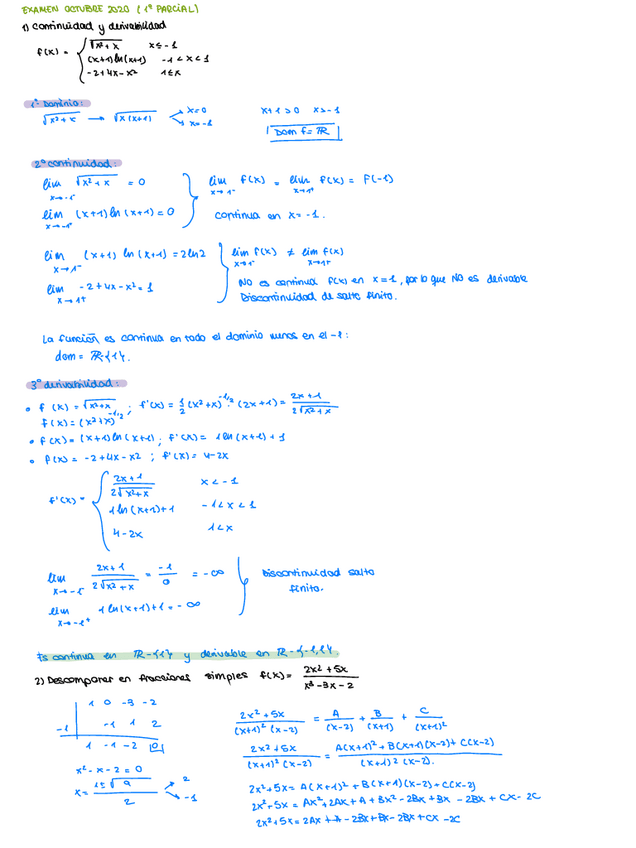 EXAMEN OCTUBRE 2020 (1º PARCIAL)
1) Continuidad y derivabilidad
f(x) = { √x²+x x≤-1
(x+1)ln(x+1) -1<x<1
-2+4x-x² 1≤x
1º Dominio:
√x²+x → √x(x+1) x=0 x=-1 x+1>0 x>-1
Dom f = ℝ
2º continuidad:
lim x→-1⁻ √x²+x = 0
lim x→-1⁺ (x+1)ln(x+1) = 0
lim x→-1⁻ f(x) = lim x→-1⁺ f(x) = f(-1)
continua en x=-1.
lim x→1⁻ (x+1) ln(x+1) = 2ln2
lim x→1⁺ -2+4x-x² = 1
lim x→1⁻ f(x) ≠ lim x→1⁺ f(x)
No es continua f(x) en x=1, por lo que NO es derivable
Discontinuidad de salto finito.
La función es continua en todo el dominio menos en el -1:
dom = ℝ-{1}.
3º derivabilidad:
• f(x) = √x²+x ; f'(x) = 1/2 (x²+x)^-1/2 · (2x+1) = 2x+1 / 2√x²+x
f(x) = (x²+x)^1/2
• f(x) = (x+1)ln(x+1) ; f'(x) = 1 ln(x+1)+1
• f(x) = -2+4x-x2 ; f'(x) = 4-2x
f'(x) = { 2x+1 / 2√x²+x x<-1
1 ln(x+1)+1 -1<x<1
4-2x 1<x
lim x→-1⁻ 2x+1 / 2√x²+x = -1/0 = -∞
lim x→-1⁺ 1 ln(x+1)+1 = -∞
Discontinuidad salto
finito.
Es continua en ℝ-{1} y derivable en ℝ-{-1,1}
2) Descomponer en fracciones simples f(x) = 2x²+5x / x³-3x-2
1 0 -3 -2
-1 -1 1 2
1 -1 -2 0
x²-x-2=0
x = 1±√9 / 2 2 -1
2x²+5x / (x+1)²(x-2) = A/(x-2) + B/(x+1) + C/(x+1)²
2x²+5x / (x+1)²(x-2) = A(x+1)²+B(x+1)(x-2)+C(x-2) / (x+1)²(x-2).
2x²+5x = A(x+1)²+B(x+1)(x-2)+C(x-2)
2x²+5x = Ax²+2Ax+A+Bx²-2Bx+Bx-2Bx+Cx-2C
2x²+5x = 2Ax+A-2Bx+Bx-2Bx+Cx-2C